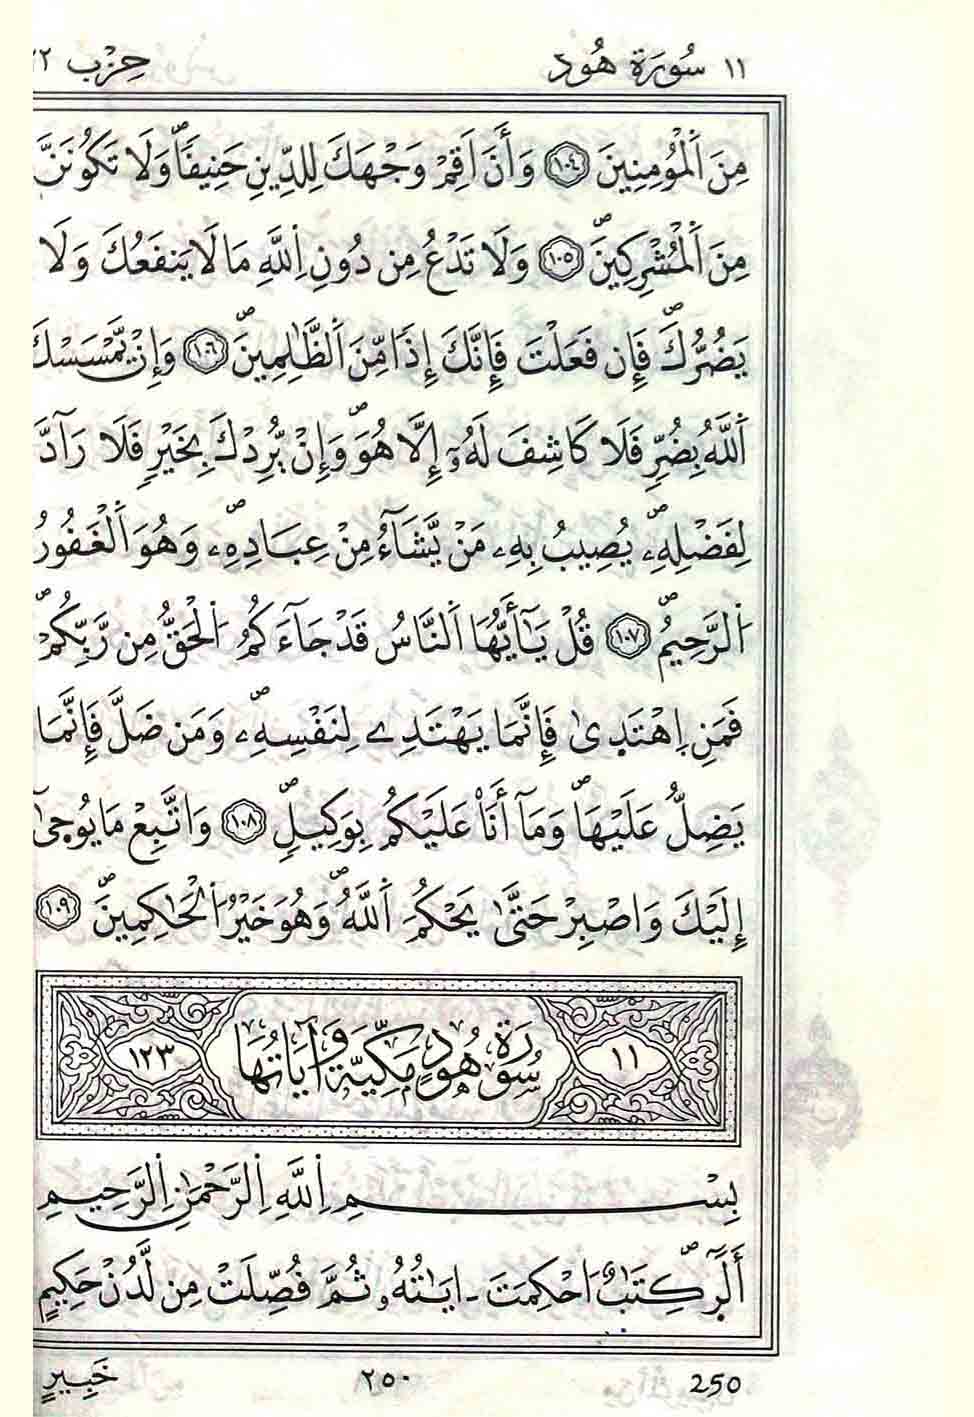 ١١ سُورَةُ هُود حِزْب ٢٢
مِنَ اَ۬لْمُؤْمِنِينَ ١٠٤ وَأَنَ اَقِمْ وَجْهَكَ لِلدِّينِ حَنِيفاٗۖ وَلَا تَكُونَنَّ
مِنَ اَ۬لْمُشْرِكِينَۖ ١٠٥ وَلَا تَدْعُ مِن دُونِ اِ۬للَّهِ مَا لَا يَنفَعُكَ وَلَا
يَضُرُّكَۖ فَإِن فَعَلْتَ فَإِنَّكَ إِذاٗ مِّنَ اَ۬لظَّٰلِمِينَۖ ١٠٦ وَإِنْ يَّمْسَسْكَ
اَ۬للَّهُ بِضُرّٖ فَلَا كَاشِفَ لَهُۥٓ إِلَّا هُوَۖ وَإِنْ يُّرِدْكَ بِخَيْرٖ فَلَا رَآدَّ
لِفَضْلِهِۦۖ يُصِيبُ بِهِۦ مَنْ يَّشَآءُ مِنْ عِبَادِهِۦۖ وَهُوَ اَ۬لْغَفُورُ
اُ۬لرَّحِيمُۖ ١٠٧ قُلْ يَٰٓأَيُّهَا اَ۬لنَّاسُ قَدْ جَآءَكُمُ اُ۬لْحَقُّ مِن رَّبِّكُمْۖ
فَمَنِ اِ۪هْتَد۪ىٰ فَإِنَّمَا يَهْتَدِے لِنَفْسِهِۦۖ وَمَن ضَلَّ فَإِنَّمَا
يَضِلُّ عَلَيْهَاۖ وَمَآ أَنَا۠ عَلَيْكُم بِوَكِيلٖۖ ١٠٨ وَاتَّبِعْ مَا يُوح۪ىٰٓ
إِلَيْكَ وَاصْبِرْ حَتَّىٰ يَحْكُمَ اَ۬للَّهُۖ وَهُوَ خَيْرُ اُ۬لْحَٰكِمِينَۖ ١٠٩
١١ سُورَةُ هُودٍ مَكِّيَّة وَآيَاتُهَا ١٢٣
بِسْمِ اِ۬للَّهِ اِ۬لرَّحْمَٰنِ اِ۬لرَّحِيمِ
أَلَٓر۪ۖ كِتَٰبٌ اُحْكِمَتَ ـ ايَٰتُهُۥ ثُمَّ فُصِّلَتْ مِن لَّدُنْ حَكِيمٍ
خَبِيرٍ
٢٥٠ 250